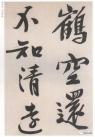 鶴空還
不知清遠